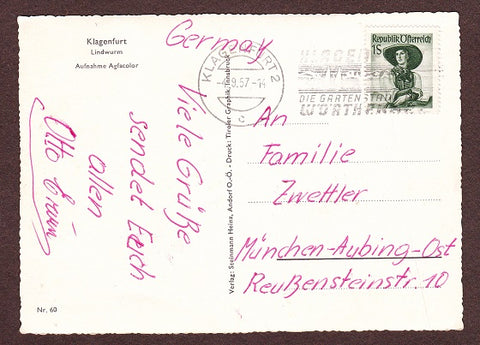 Klagenfurt
Lindwurm
Aufnahme Agfacolor
Germay
Viele Grüße
sendet Euch
allen
Otto
Nr. 60
Verlag: Steinmann Heinz, Andorf O.-Ö. - Druck: Tiroler Graphik, Innsbruck
KLAGENFURT 2
9.57
c
KLAGENFURT
DIE GARTENSTADT
WÖRTHERSEE
Republik Österreich
1S
An
Familie
Zwettler
München-Aubing-Ost
Reußensteinstr. 10